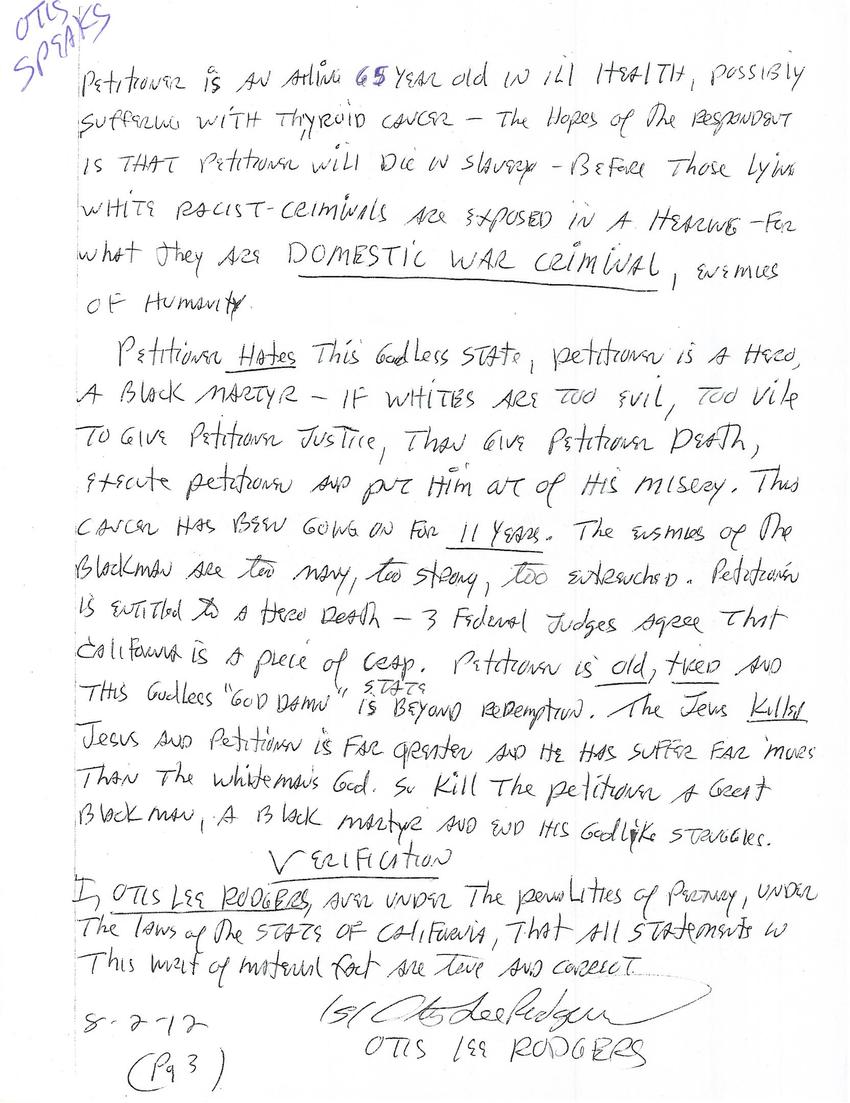 OTIS
SPEAKS
Petitioner is AN Ailing 65 YEAR old IN ill HEALTH, possibly
suffering WITH Thyroid CANCER – The Hopes of The RESPONDENT
IS THAT Petitioner Will Die IN Slavery – BEFORE Those Lying
WHITE RACIST-CRIMINALS ARE EXPOSED IN A HEARING – FOR
what They ARE DOMESTIC WAR CRIMINAL, ENEMIES
OF HUMANITY.
Petitioner Hates This Godless STATE, petitioner is A HERO,
A Black MARTYR – IF WHITES ARE TOO EVIL, TOO Vile
TO GIVE Petitioner JUSTICE, THAN GIVE Petitioner DEATH,
EXECUTE petitioner AND put Him out of His misery. This
CANCER HAS BEEN GOING ON FOR 11 YEARS. The ENEMIES of The
Blackman ARE too many, too strong, too entrenched. Petitioner
is entitled to A Hero Death – 3 Federal Judges Agree That
California is A piece of CRAP. Petitioner is old, tired AND
THIS Godless "GOD DAMN" STATE IS BEYOND REDEMPTION. The Jews Killed
Jesus AND Petitioner is FAR greater AND HE HAS SUFFER FAR more
Than The whiteman's God. So Kill The petitioner A Great
Black man, A Black martyr AND END HIS Godlike STRUGGLES.
VERIFICATION
I, OTIS LEE RODGERS, AVER UNDER The penalities of Perjury, UNDER
The laws of The STATE OF CALIFORNIA, THAT All STATEMENTS IN
This writ of material fact ARE true AND CORRECT.
8-2-12 /s/ Otis Lee Rodgers
OTIS LEE RODGERS
(Pg 3)